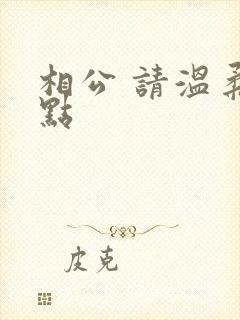 相公 請溫柔
點
皮克